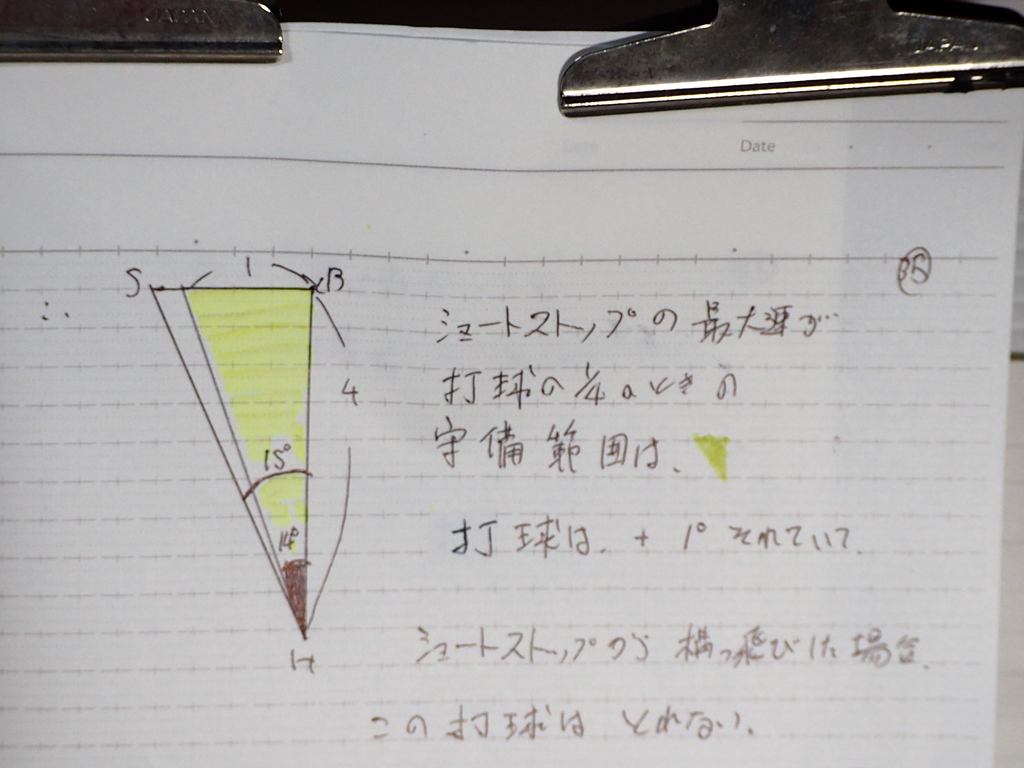 JAPAN
JAPAN
Date
35
S 1 B
∴
4
15°
14°
H
ショートストップの最大速が
打球の1/4のときの
守備範囲は、
打球は、+1°それていて
ショートストップが横っ飛びした場合、
この打球はとれない。